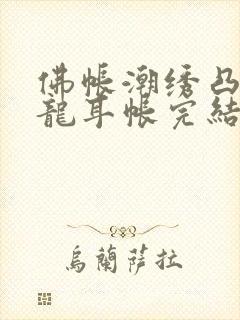 佛帳潮绣凸
龍耳帳完結
烏蘭薩拉